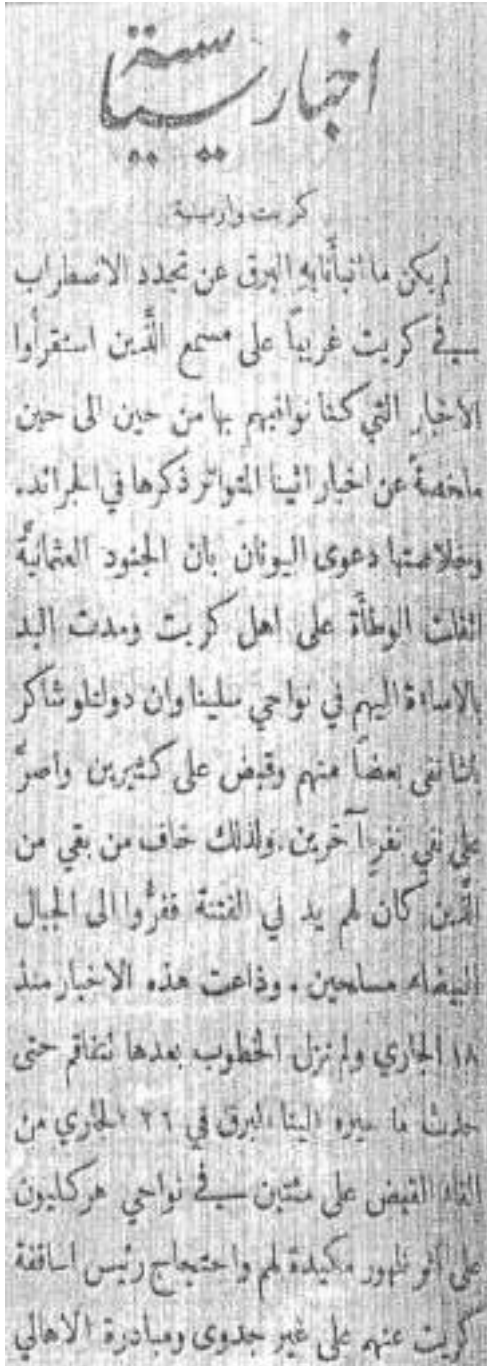 اخبار سياسية
كريت وارمنية
لم يكن ما انبأنا به البرق عن تجدد الاضطراب
في كريت غريبًا على مسمع الَّذين استقرأوا
الاخبار التي كنا نوافيهم بها من حين الى حين
ملخصةً عن اخبار اثينا المتواتر ذكرها في الجرائد.
وخلاصتها دعوى اليونان بان الجنود العثمانيَّة
اثقلت الوطأَة على اهل كريت ومدت اليد
بالاساءة اليهم في نواحي سلينا وان دولتلو شاكر
باشا نفى بعضًا منهم وقبض على كثيرين واصرَّ
على نفي نفرٍ آخرين. ولذلك خاف من بقي من
الَّذين كان لهم يد في الفتنة ففرُّوا الى الجبال
البيضاء مسلحين. وذاعت هذه الاخبار منذ
١٨ الجاري ولم تزل الخطوب بعدها تتفاقم حتى
حدث ما البرق في ٢٦ الجاري من
القاء القبض على مئتين في نواحي هركليون
على اثر ظهور مكيدة لهم واحتجاج رئيس اساقفة
كريت عنهم على غير جدوى ومبادرة الاهالي